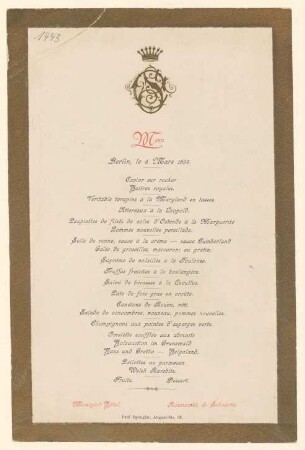 1443
Menu
Berlin, le 4 Mars 1893.
Caviar sur rocher
Huîtres royales.
Véritable terapine à la Maryland en tasses
à la Léopold.
Paupiettes de filets de soles d'Ostende à la Marguerite
Pommes nouvelles persillade.
Selle de renne, sauce à la crème — sauce Cumberland
Gelée de groseilles, macaroni au gratin.
Suprême de volailles à la Toulouse.
Truffes fraîches à la boulangère.
Salmi de bécasses à la Lucullus.
Pâté de foie gras en croûte.
Canetons de Rouen, rôti.
Salade de concombres, nouveau, pommes nouvelles.
Champignons aux pointes d'asperges verte.
Omelette soufflée aux abricots
im Grunewald
und Grotte — Helgoland.
Paillettes au parmesan.
Welsh Rarebits.
Fruits. Dessert.